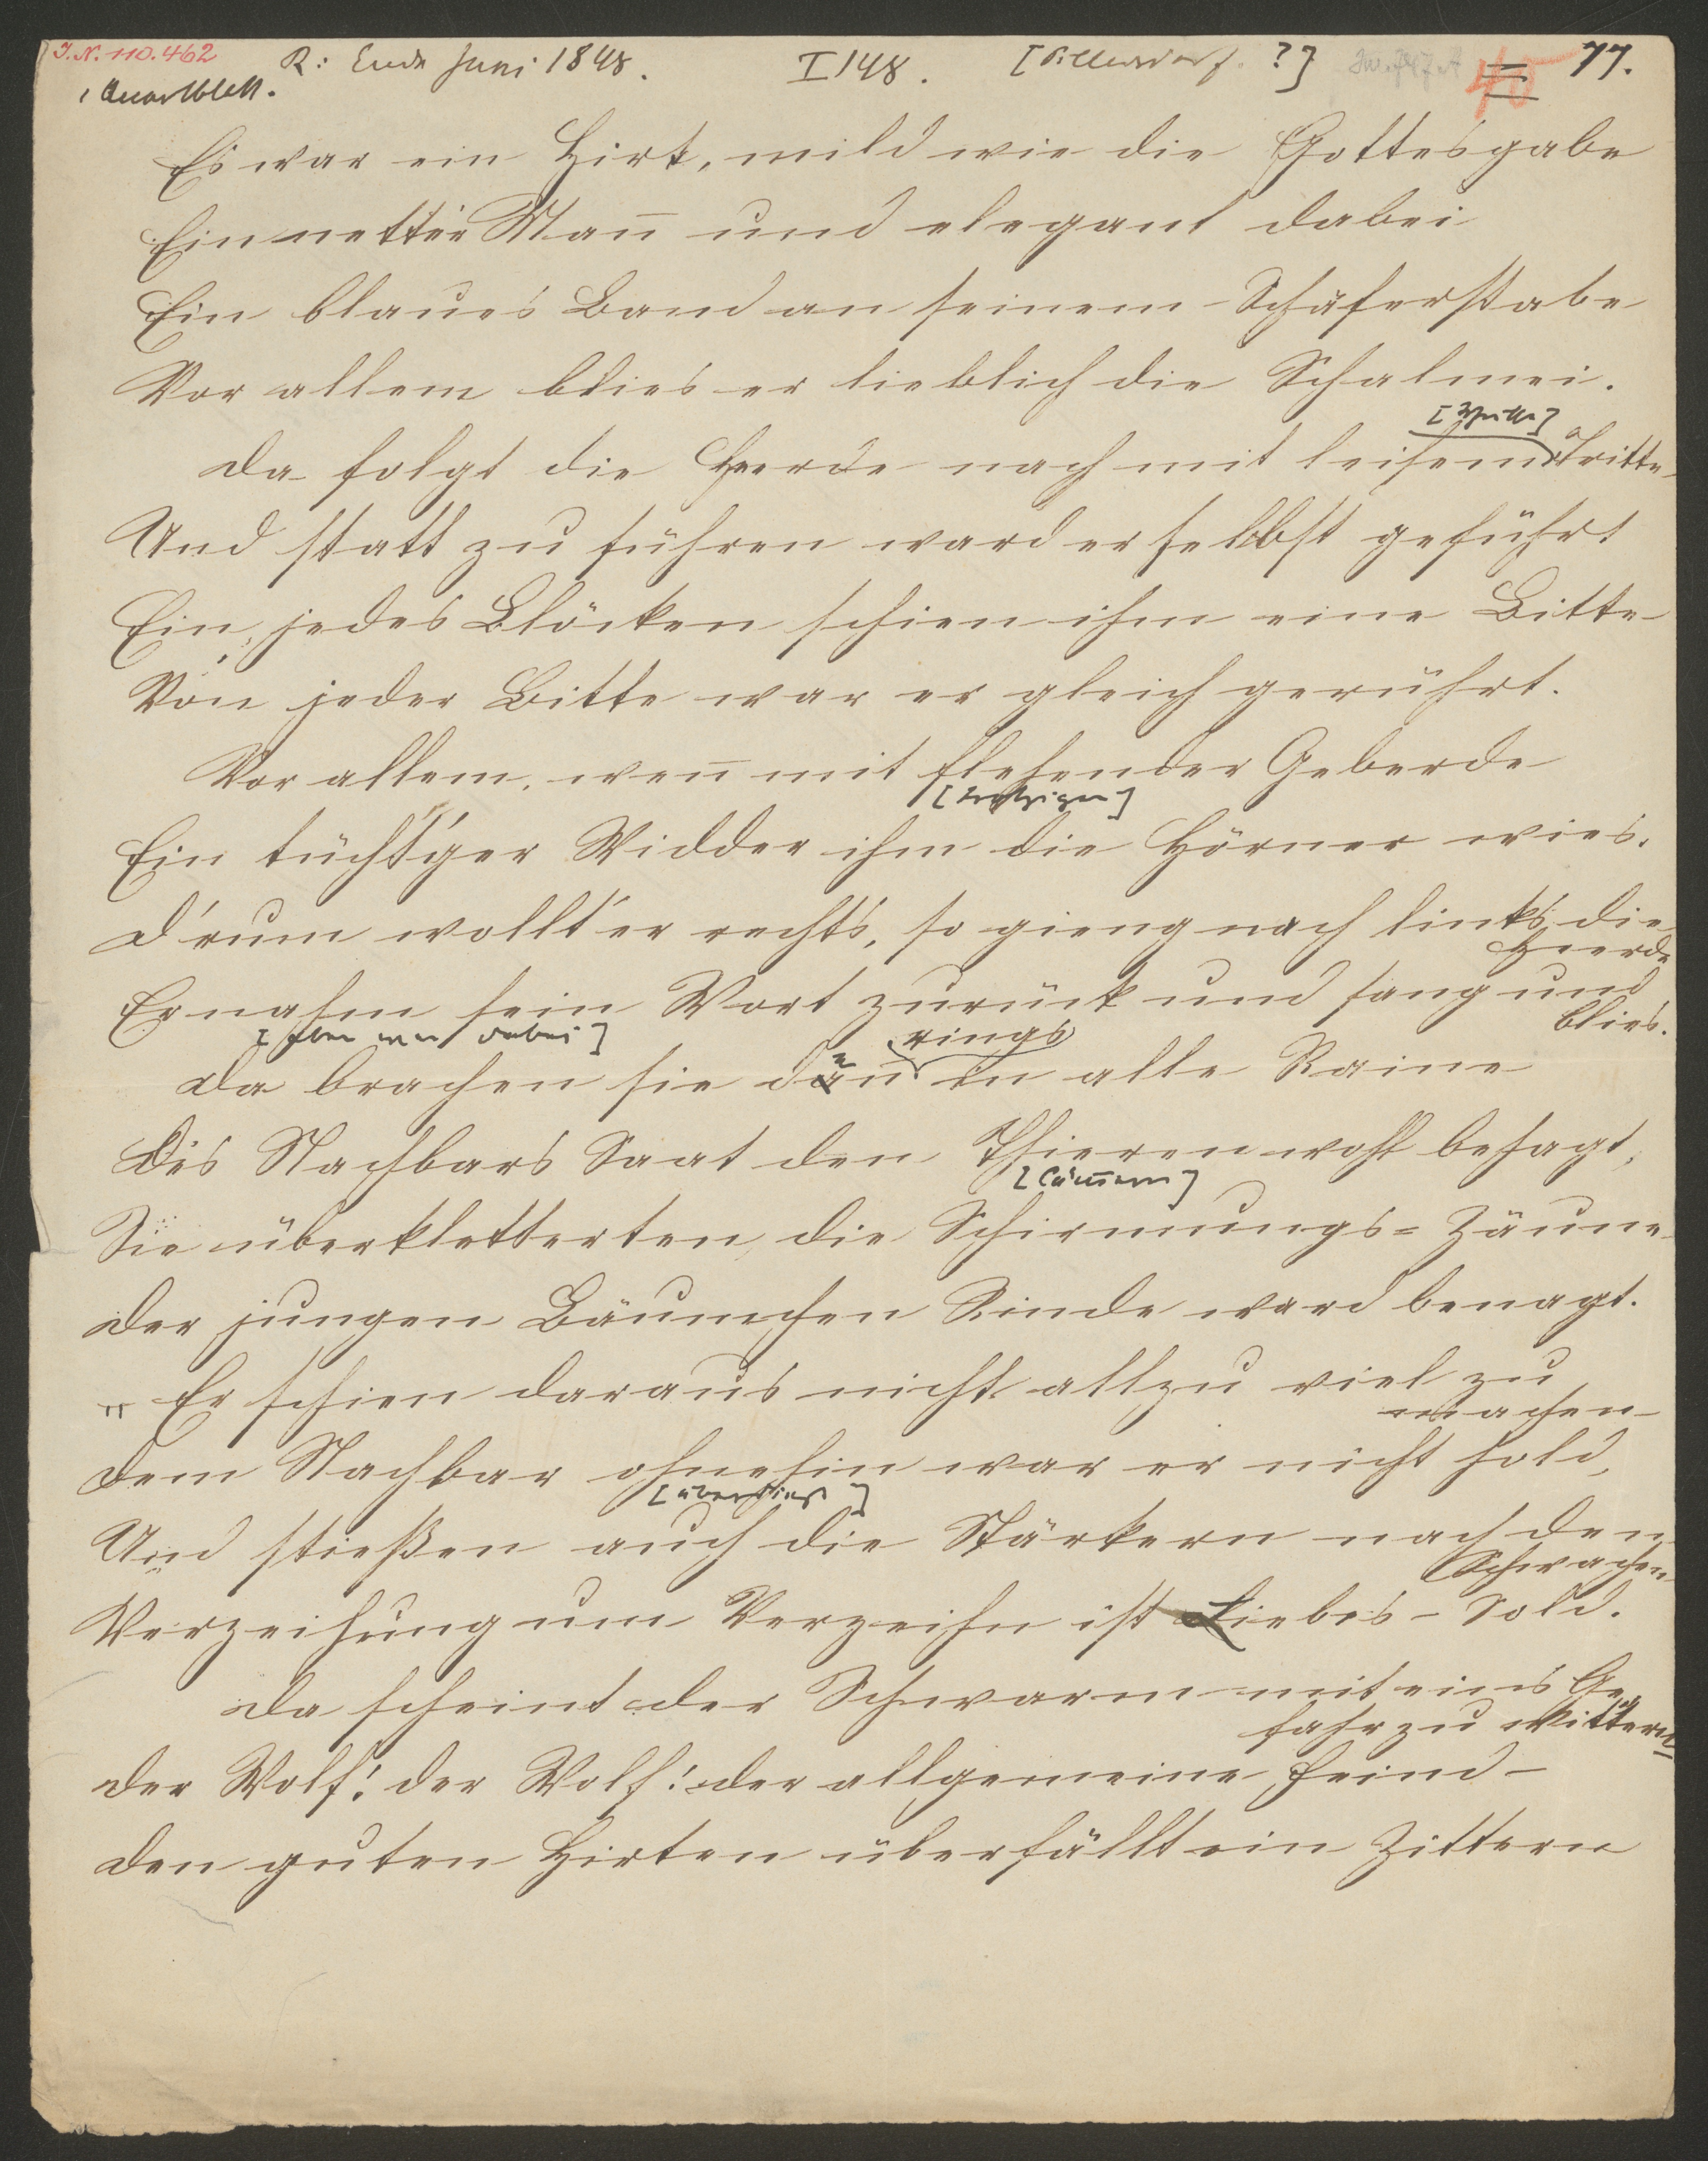 I.N. 110.462
R: Ende Juni 1848.
I 148.
[Pillersdorf. ?]
40
77.
1 Quartblatt.
Es war ein Hirt, mild wie die Gottesgabe
Ein netter Mañ und elegant dabei
Ein blaues Band an seinem Schäferstabe
Vor allem blies er lieblich die Schalmei.
Da folgt die Heerde nach mit leisem Tritte
Und statt zu führen ward er selbst geführt
Ein jedes Blöcken schien ihm eine Bitte
Von jeder Bitte war er gleich gerührt.
Vor allem, weñ mit flehender Geberde
[trotziger]
Ein tücht'ger Widder ihm die Hörner wies.
D'rum wollt' er rechts, so gieng nach links die
Heerde
Er nahm sein Wort zurück und sang und
blies.
rings
Da brachen sie dañ in alle Raine
Des Nachbars Saat den Thieren wohl behagt,
[Lämmern]
Sie überkletterten die Schirmungs-Zäune
Der jungen Bäumchen Rinde ward benagt.
„ Er schien daraus nicht allzu viel zu
machen
Dem Nachbar ohnehin war er nicht hold,
[überdies]
Und stießen auch die Stärkern nach den
Schwachen
Verzeihung um Verzeihn ist Liebes-Sold.
Da scheint der Schwarm mit eins Ge
fahr zu wittern
Der Wolf! der Wolf! der allgemeine Feind –
Den guten Hirten überfällt ein Zittern